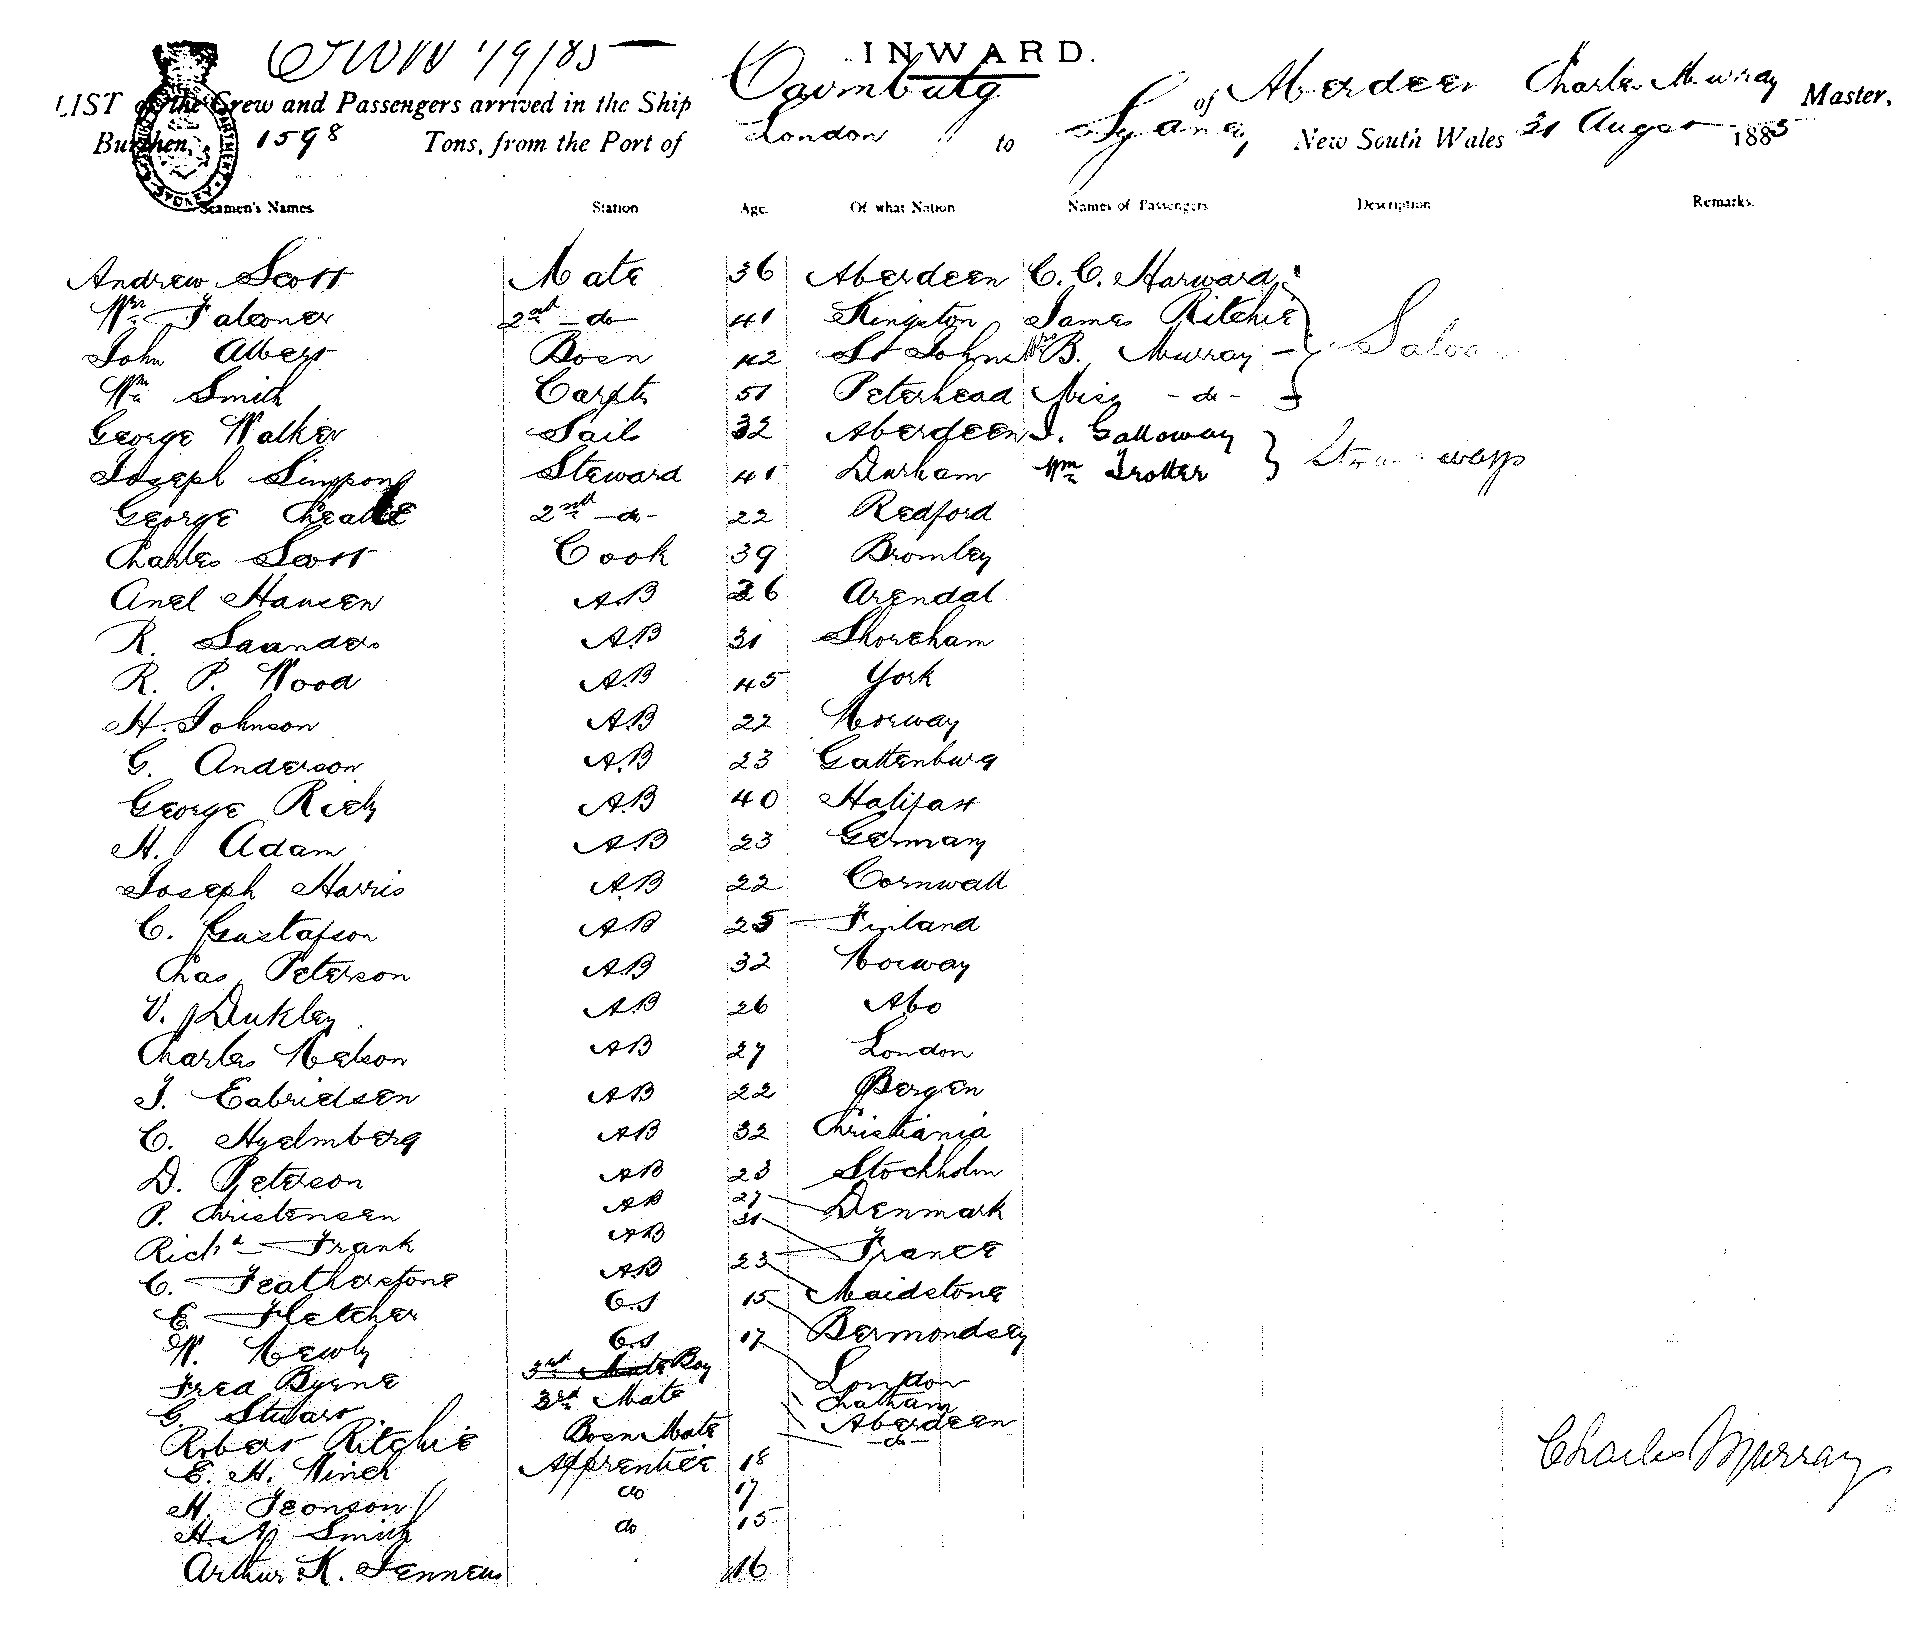 INWARD.
LIST of the Crew and Passengers arrived in the Ship of Aberdeen Charles Murray Master,
Burthen, 1598 Tons, from the Port of London to Sydney New South Wales 31 August 1885
Seamen's Names Station Age. Of what Nation Names of Passengers Description Remarks.
Andrew Scott Mate 36 Aberdeen C. C. Harward
Wm Falconer 2nd do 41 Kingston James Ritchie
John Albert Bosn 42 St Johns Mrs B. Murray Saloon
Wm Smith Carptr 51 Peterhead Miss - do -
George Walker Sails 32 Aberdeen J. Galloway
Joseph Simpson Steward 41 Durham Wm Trotter
George 2nd - do - 22 Redford
Charles Scott Cook 39 Bromley
Hansen A.B 26 Arendal
R. Saunders A.B 31 Shoreham
R. P. Wood A.B 45 York
H. Johnson A.B 22 Norway
G. Anderson A.B 23 Gattenburg
George A.B 40 Halifax
H. Adam A.B 23 Germany
Joseph Harris A.B 22 Cornwall
C. Gustafson A.B 25 Finland
Chas Peterson A.B 32 Norway
V. A.B 26 Abo
Charles Nelson A.B 27 London
J. Gabrielsen A.B 22 Bergen
C. Hyelmberg A.B 32 Christiania
D. Peterson A.B 23 Stockholm
P. Christensen A.B 27 Denmark
Richd Frank A.B 31 France
C. Featherstone A.B 23 Maidstone
E. Fletcher O.S 15 Bermondsey
W. Newly O.S 17 London
Fred Byrne 3rd Mate Boy Chatham
G. Stewart 3rd Mate Aberdeen
Robert Ritchie Bosn Mate - do -
E. H. Winch Apprentice 18
H. do 17
H. Smith do 15
Arthur K. 16
Charles Murray